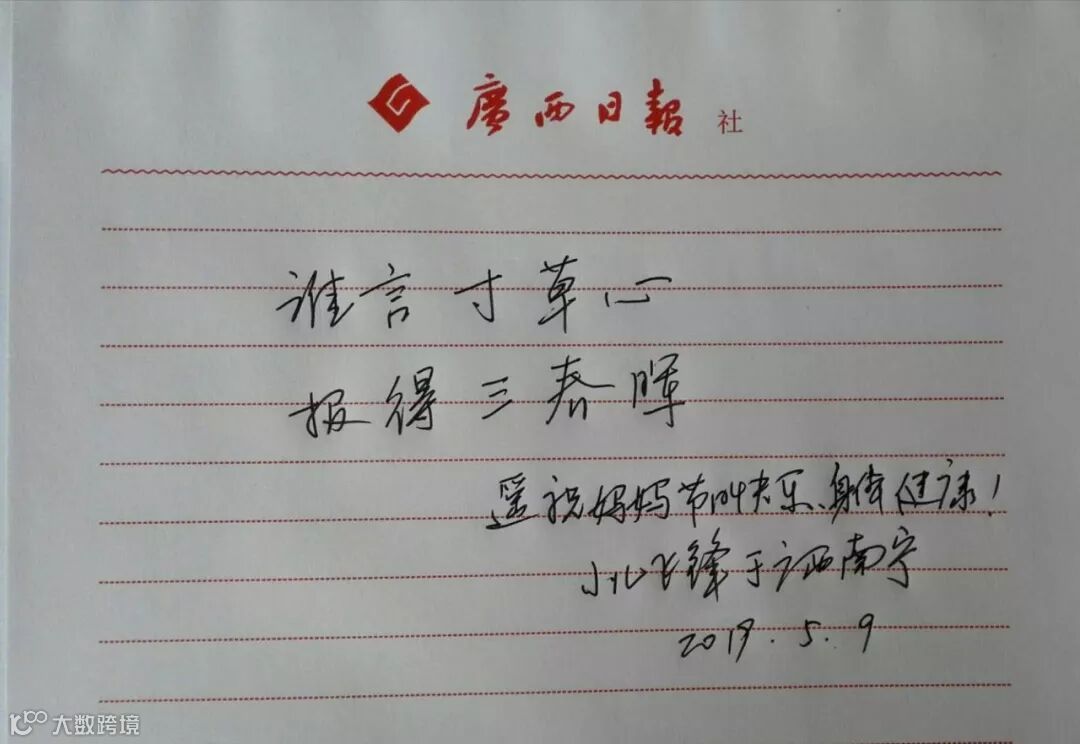 廣西日報 社
谁言寸草心
报得三春晖
遥祝妈妈节日快乐、身体健康!
小儿飞锋于广西南宁
2019.5.9
大数跨境